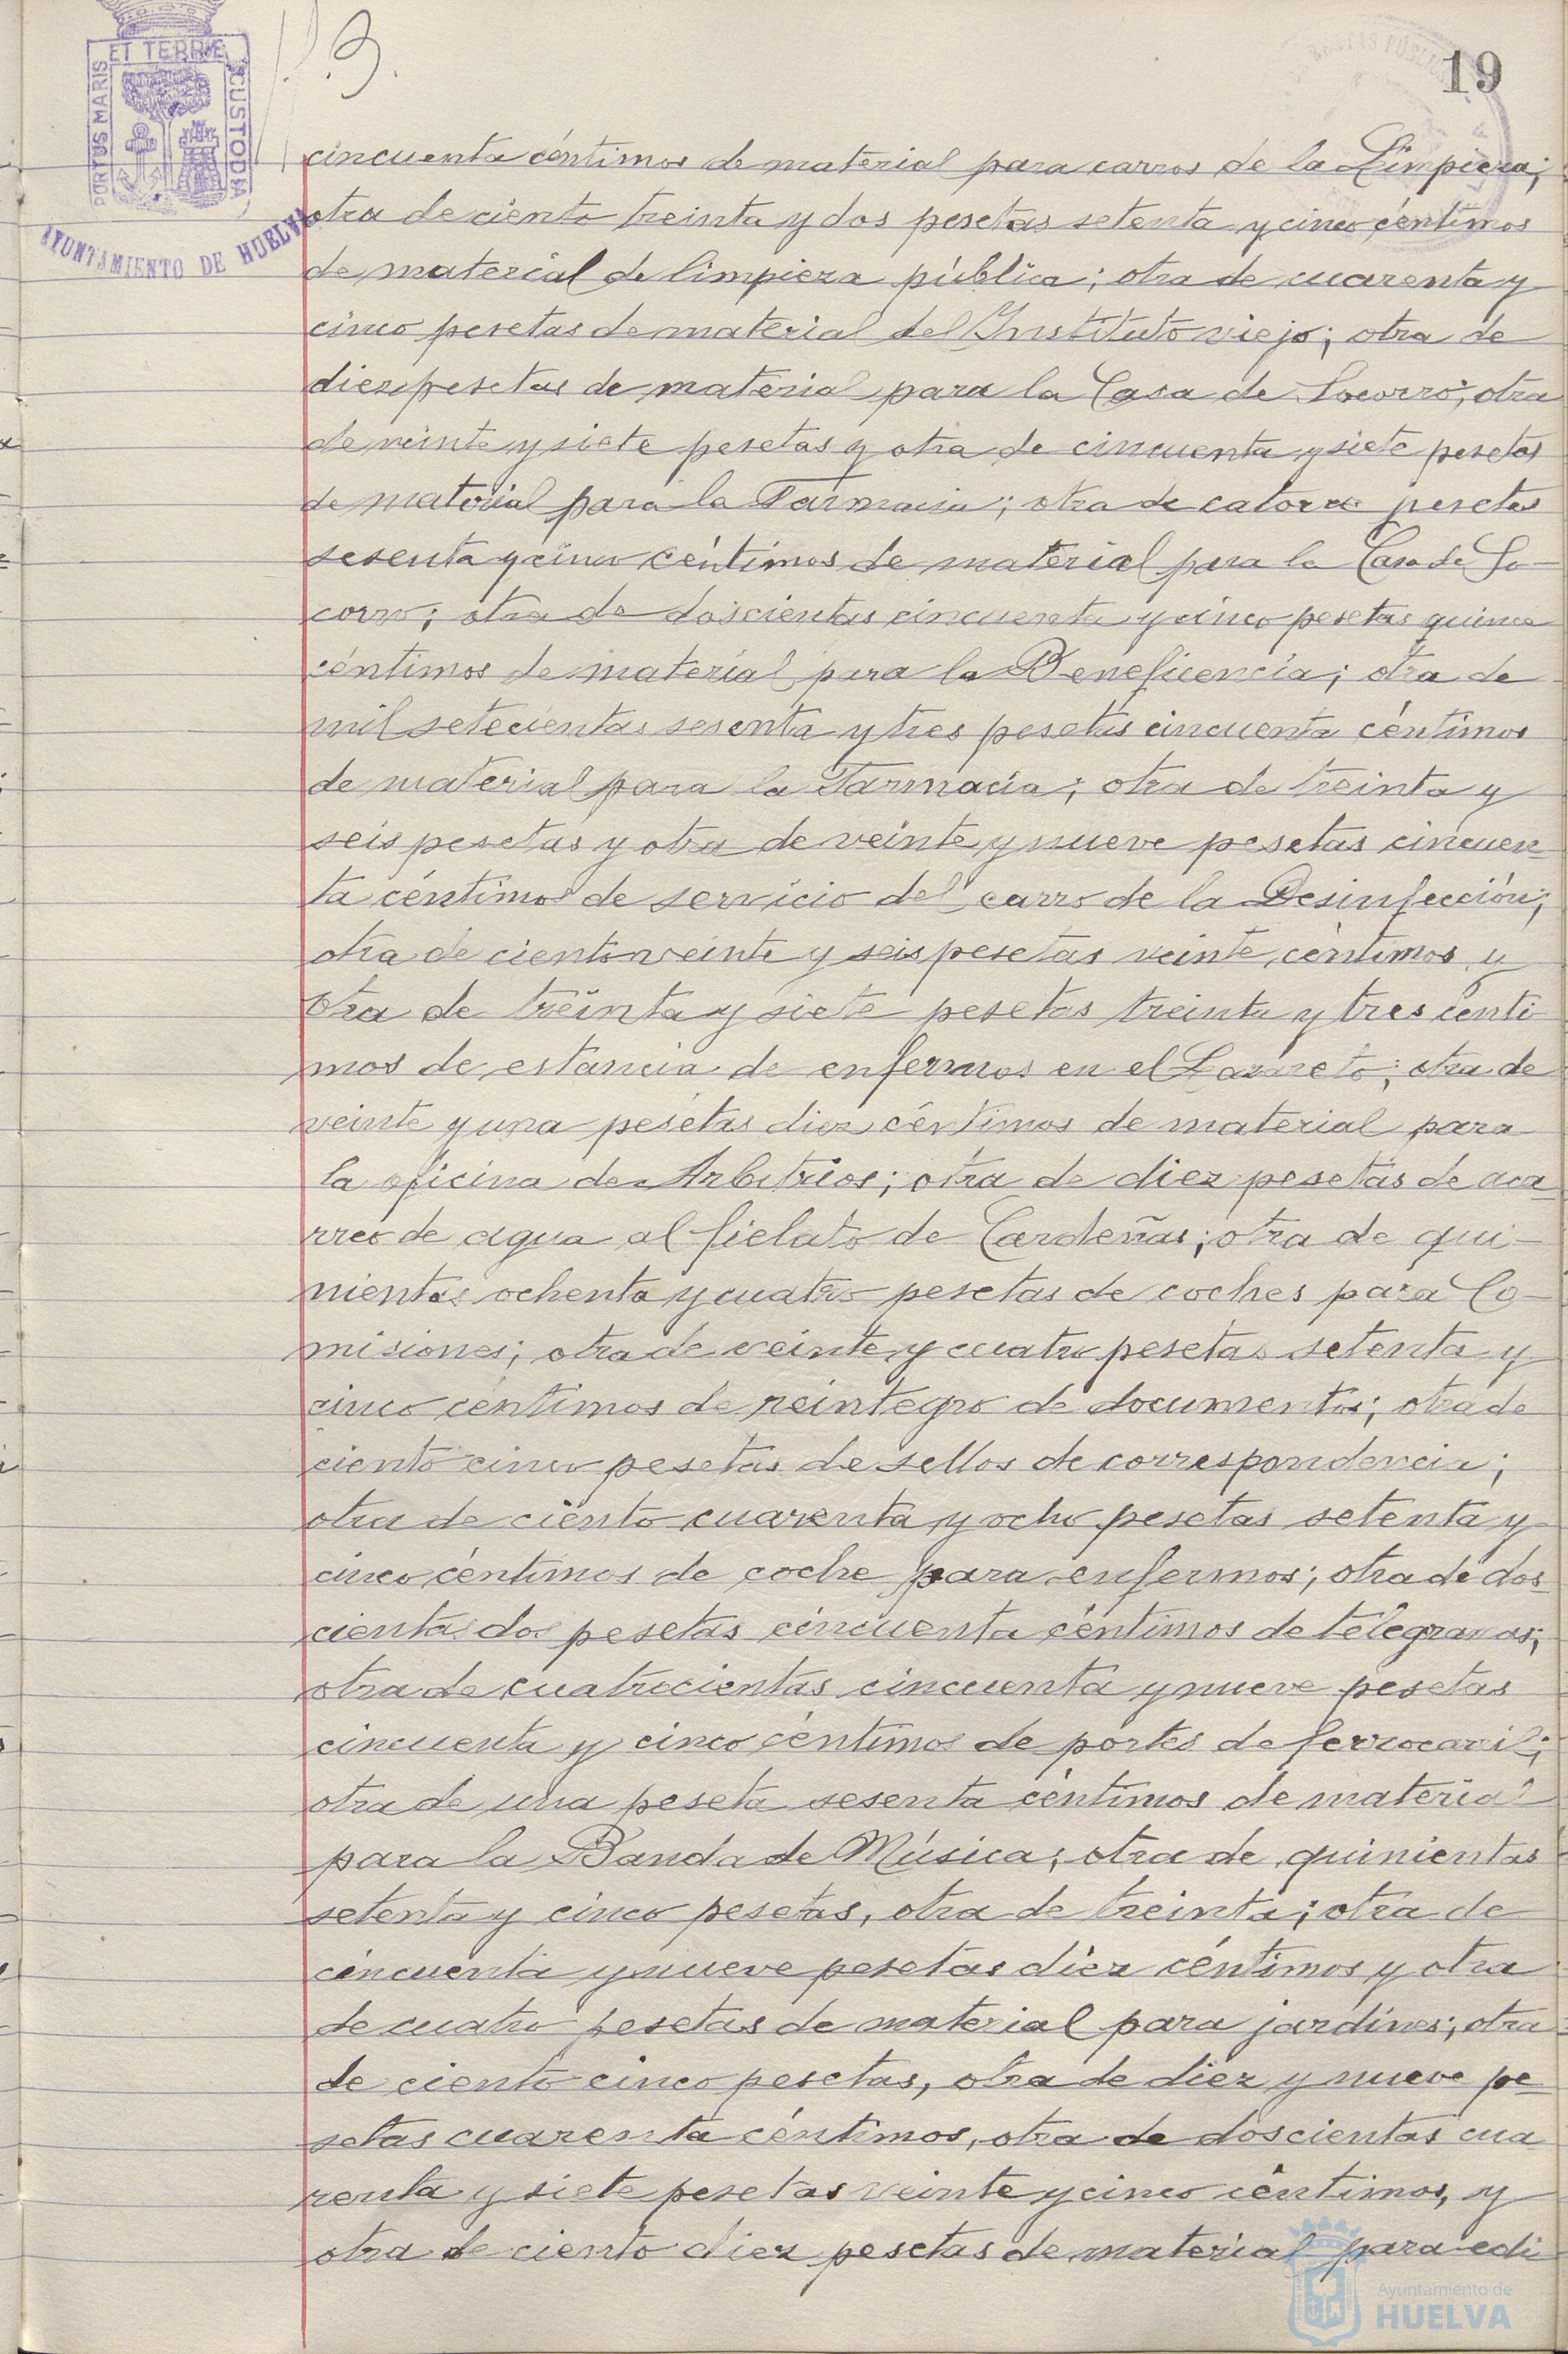 19
PORTUS MARIS ET TERRE CUSTODIA
AYUNTAMIENTO DE HUELVA
cincuenta céntimos de material para carros de la Limpieza;
otra de ciento treinta y dos pesetas setenta y cinco céntimos
de material de limpieza pública; otra de cuarenta y
cinco pesetas de material del Instituto viejo; otra de
diez pesetas de material para la Casa de Socorro; otra
de veinte y siete pesetas y otra de cincuenta y siete pesetas
de material para la Farmacia; otra de catorce pesetas
sesenta y cinco céntimos de material para la Casa de So-
corro; otra de doscientas cincuenta y cinco pesetas quince
céntimos de material para la Beneficencia; otra de
mil setecientas sesenta y tres pesetas cincuenta céntimos
de material para la Farmacia; otra de treinta y
seis pesetas y otra de veinte y nueve pesetas cincuen-
ta céntimos de servicio del carro de la Desinfección;
otra de ciento veinte y seis pesetas veinte céntimos y
otra de treinta y siete pesetas treinta y tres centi
mos de estancia de enfermos en el Lazareto; otra de
veinte y una pesetas diez céntimos de material para
la oficina de Arbitrios; otra de diez pesetas de aca
rreo de agua al fielato de Cardeñas; otra de qui-
nientas ochenta y cuatro pesetas de coches para Co-
misiones; otra de veinte y cuatro pesetas setenta y
cinco céntimos de reintegro de documentos; otra de
ciento cinco pesetas de sellos de correspondencia;
otra de ciento cuarenta y ocho pesetas setenta y
cinco céntimos de coche para enfermos; otra de dos-
cientas dos pesetas cincuenta céntimos de telegramas;
otra de cuatrocientas cincuenta y nueve pesetas
cincuenta y cinco céntimos de portes de ferrocaril;
otra de una peseta sesenta céntimos de material
para la Banda de Música; otra de quinientas
setenta y cinco pesetas, otra de treinta; otra de
cincuenta y nueve pesetas diez céntimos y otra
de cuatro pesetas de material para jardines; otra
de ciento cinco pesetas, otra de diez y nueve pe-
setas cuarenta céntimos, otra de doscientas cua
renta y siete pesetas veinte y cinco céntimos, y
otra de ciento diez pesetas de material para edi
Ayuntamiento de
HUELVA